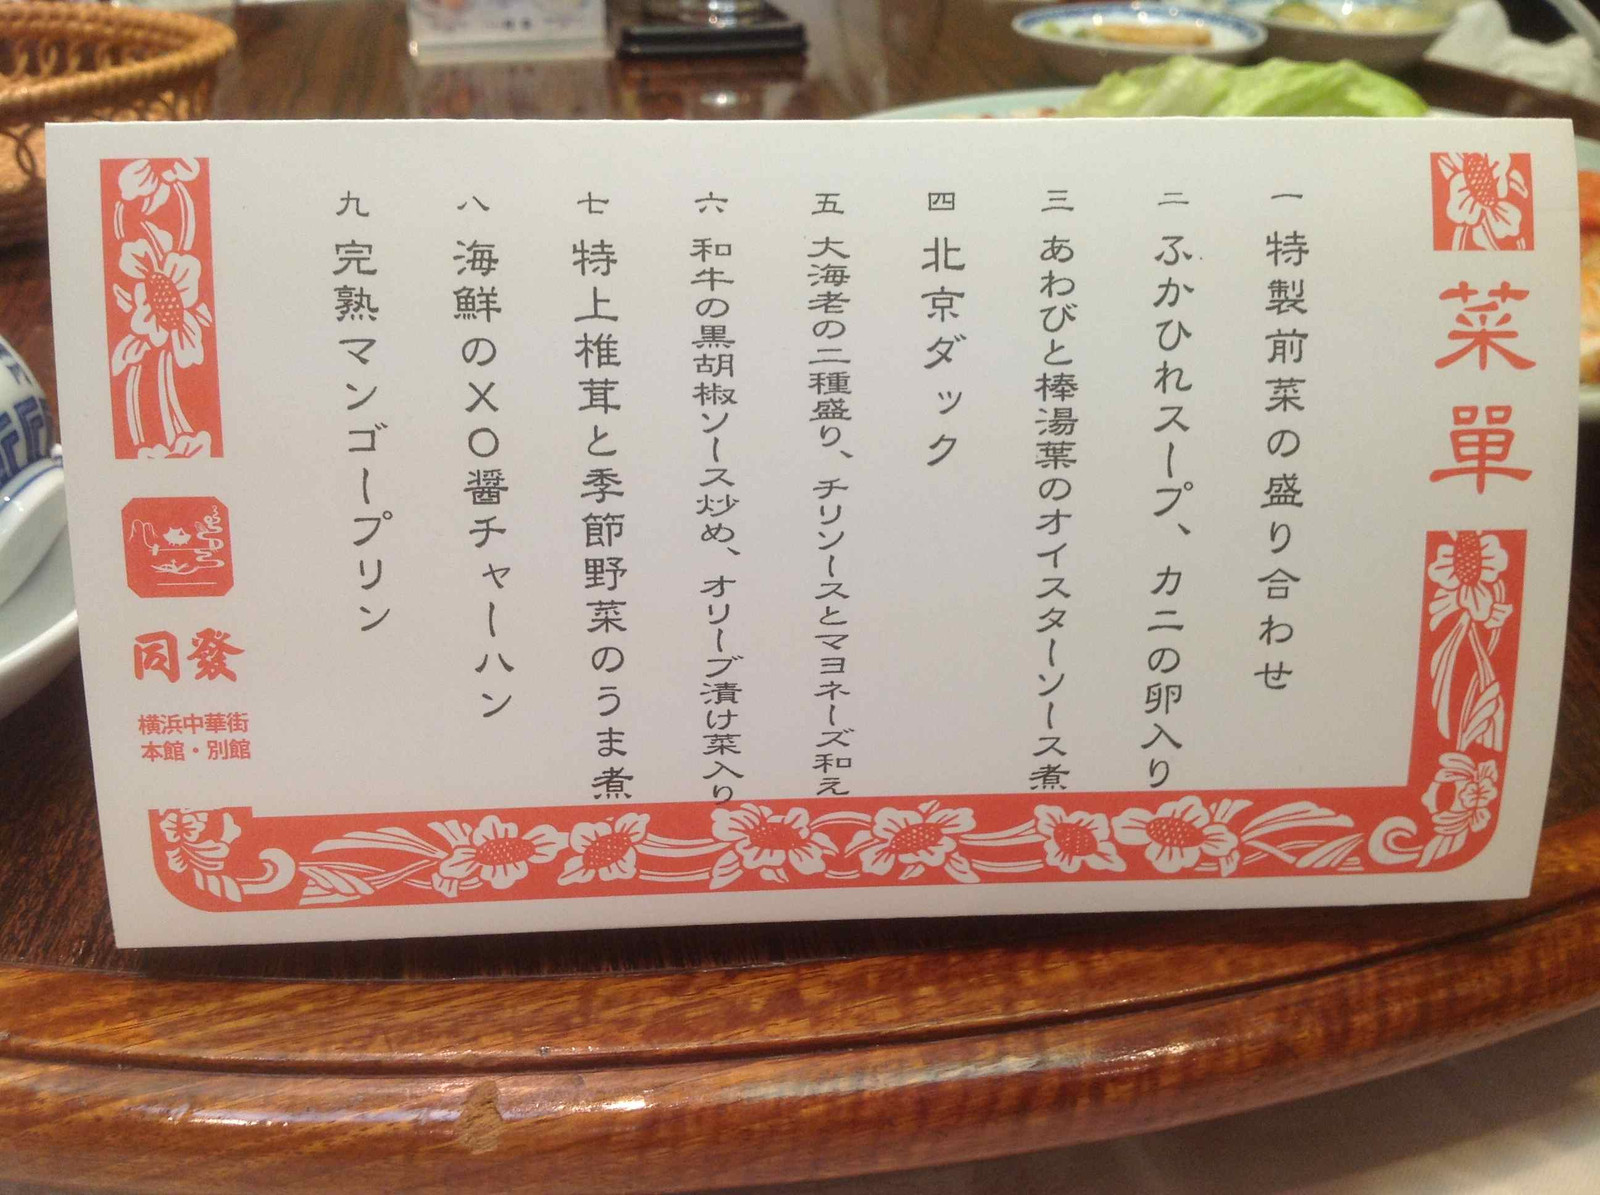 菜單
一 特製前菜の盛り合わせ
二 ふかひれスープ、カニの卵入り
三 あわびと棒湯葉のオイスターソース煮
四 北京ダック
五 大海老の二種盛り、チリソースとマヨネーズ和え
六 和牛の黒胡椒ソース炒め、オリーブ漬け菜入り
七 特上椎茸と季節野菜のうま煮
八 海鮮のXO醤チャーハン
九 完熟マンゴープリン
同發
横浜中華街
本館・別館